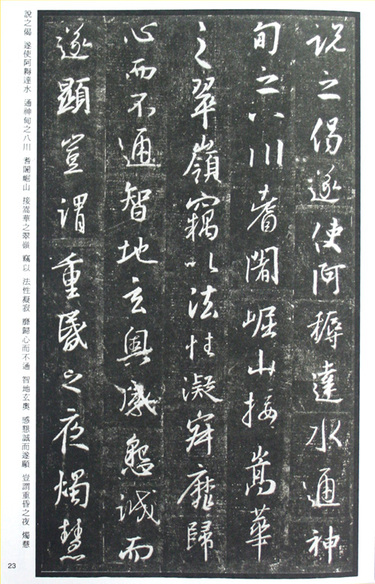 説之偈遂使阿耨達水通神
甸之八川耆闍崛山接嵩華
之翠嶺竊以法性凝寂靡歸
心而不通智地玄奥感懇誠而
遂顯豈謂重昏之夜燭慧
說之偈　遂使阿耨達水　通神甸之八川　耆闍崛山　接嵩華之翠嶺　竊以　法性凝寂　靡歸心而不通　智地玄奧　感懇誠而遂顯　豈謂重昏之夜　燭慧
23